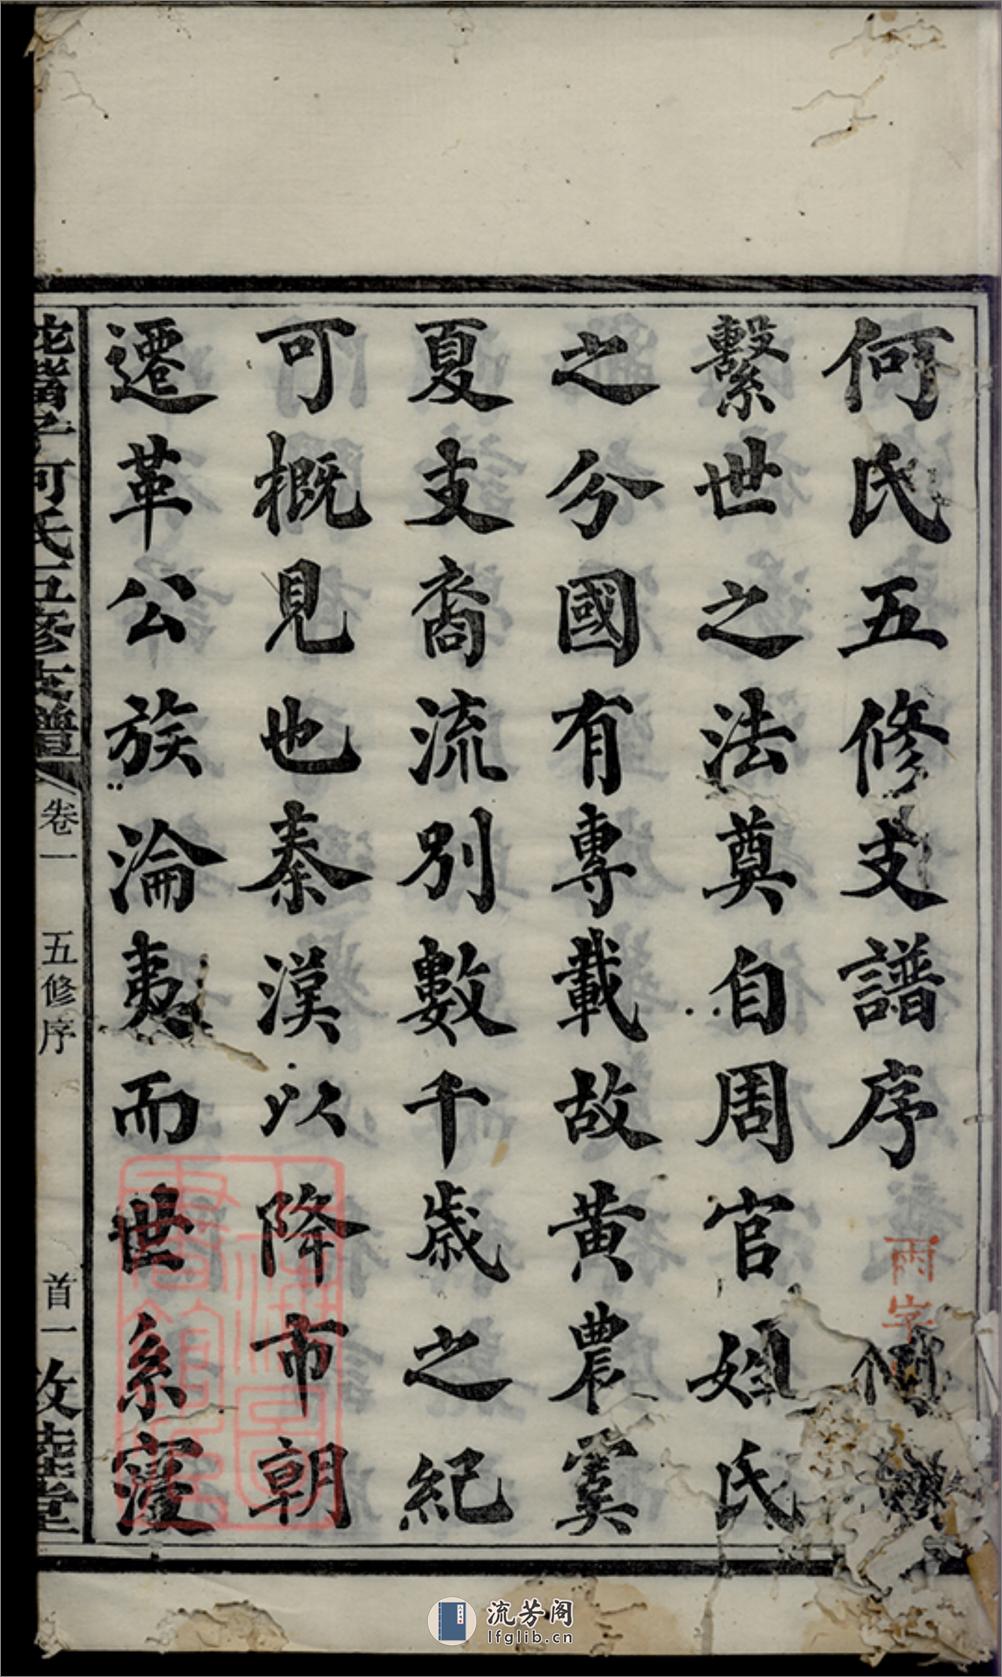 何氏五修支譜序
雨字
繫世之法奠自周官姓氏
之分國有專載故黃農虞
夏支裔流別數千歲之紀
可概見也秦漢以降市朝
遷革公族淪夷而世系寖
何氏五修支譜
卷一
五修序
首一
敦睦堂
上海圖書館藏
流芳阁
lfglib.cn